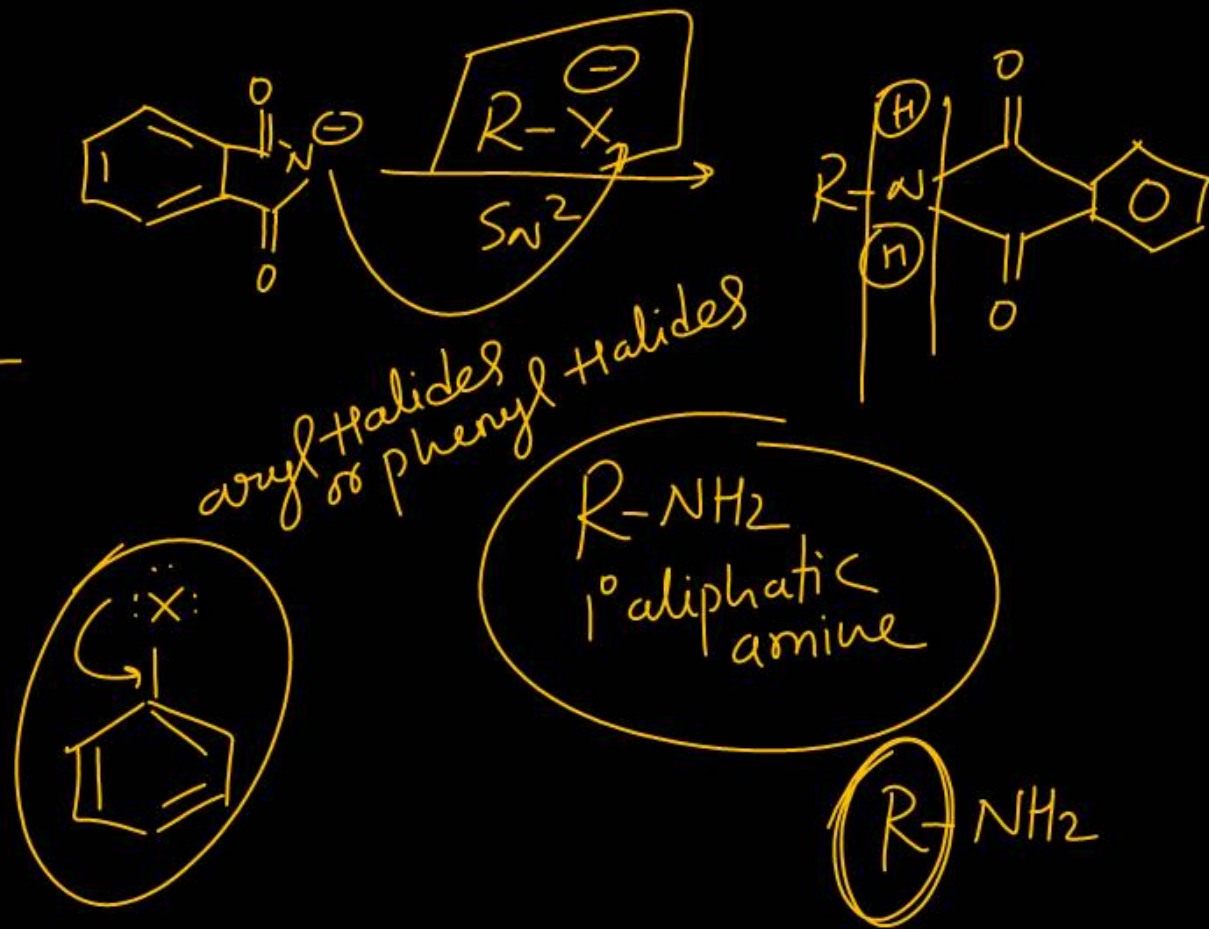 O
N ⊖
O
⊖
R-X
SN2
O
H
R-N
H
O
aryl Halides
or phenyl Halides
R-NH2
1° aliphatic
amine
:X:
R-NH2